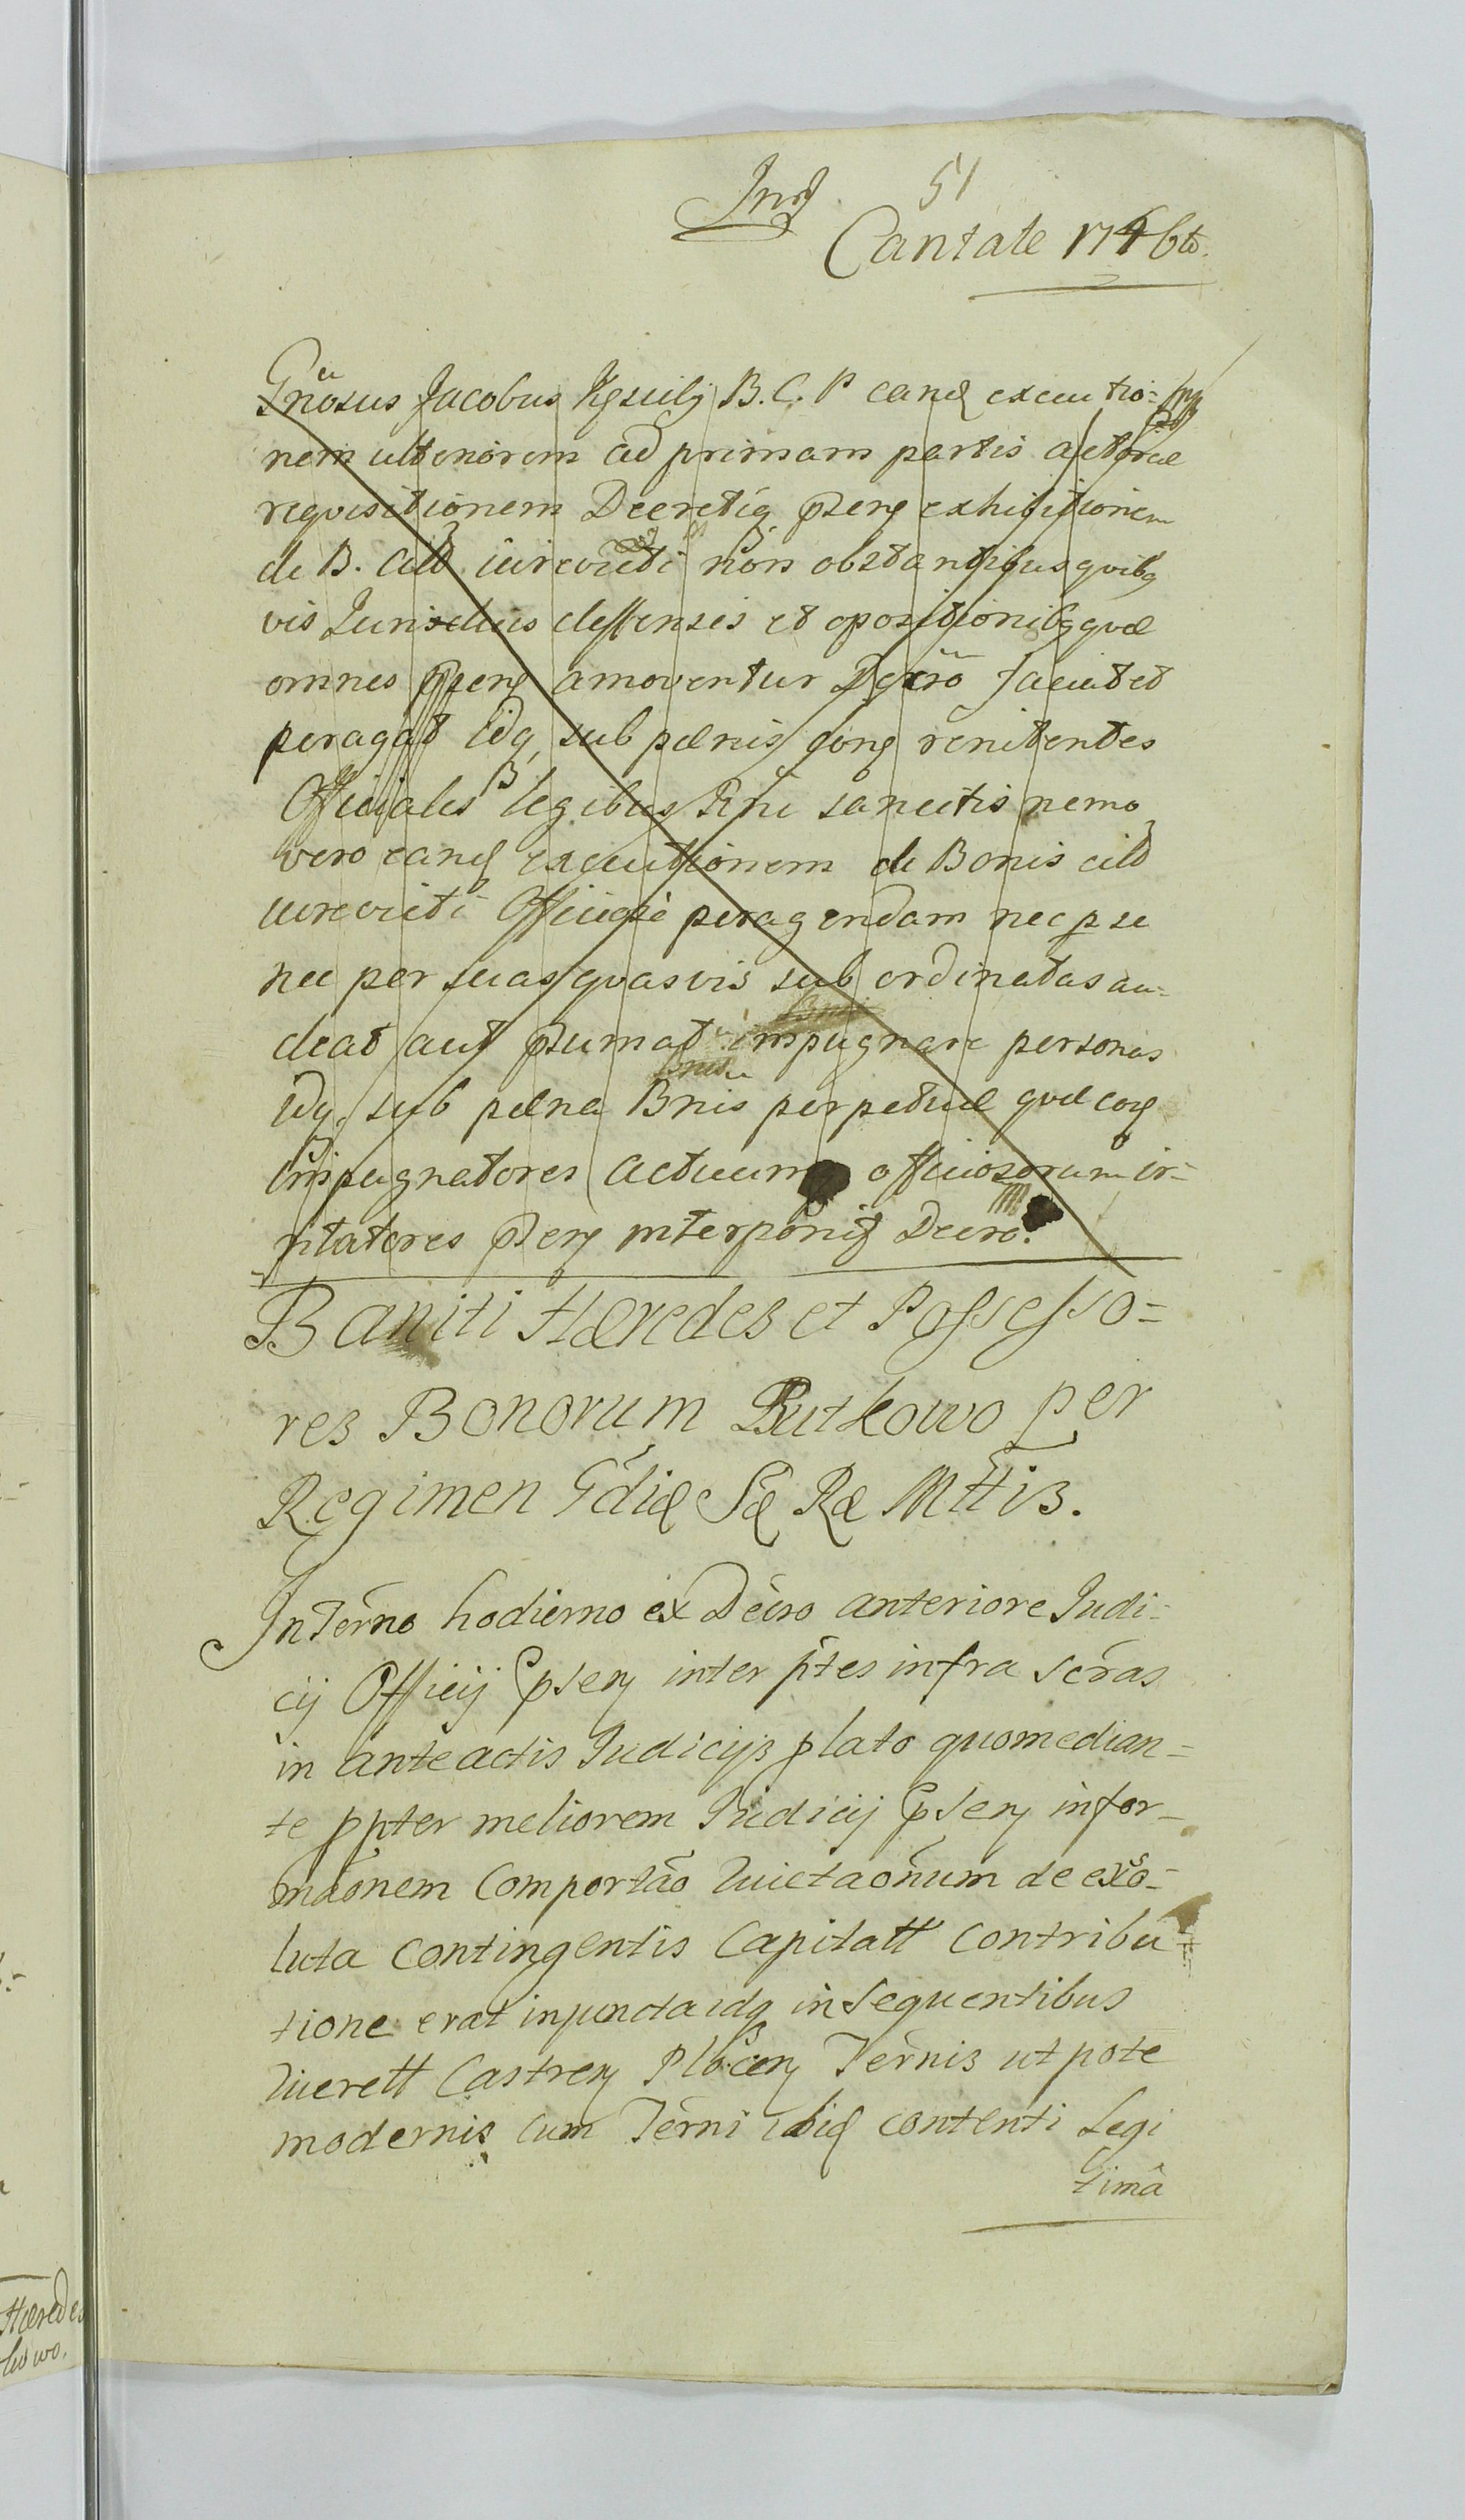 51
Cantate 1746to.
Gnosus Jacobus B. C. P eand executio=
nem ulteriorem ad primam partis actoreæ
requisitionem Decretiq pseng exhibitionem
de B. Citt iurevicti non obstantibus quibq
vis Juris deffensis et opositionibq quæ
omnes pseng amoventur Decro faciat et
peragat idq sub pænis gong renitentes
Officiales legibus Rni sancitis nemo
vero eand executionem de Bonis citt
iurevicti Officiose peragendam nec p se
nec per suas quasvis sub ordinatas au=
deat aut psumat impugnare personas
idq. sub pæna Bnis perpetuæ quæ coq
impugnatores actuum officiosorum ir=
ritatores pseng interponig Decro.
Baniti Hæredes et Possesso=
res Bonorum Rutkowo per
Regimen Gdiæ Sæ Ræ Mttis.
In Terno hodierno ex Decro anteriore Judi=
cij Officij psenq inter ptes infra scras
in anteactis Judicijs plato quomedian=
te ppter meliorem Judicij psenq infor=
maonem Comportao Quietaonum de exo=
luta Contingentis Capitatt Contribu=
tione erat injuncta idq in sequentibus
Querett Castrenq Plocenq Ternis utpote
modernis cum Terni ibid contenti Legi
tima
Hærede
kowo.